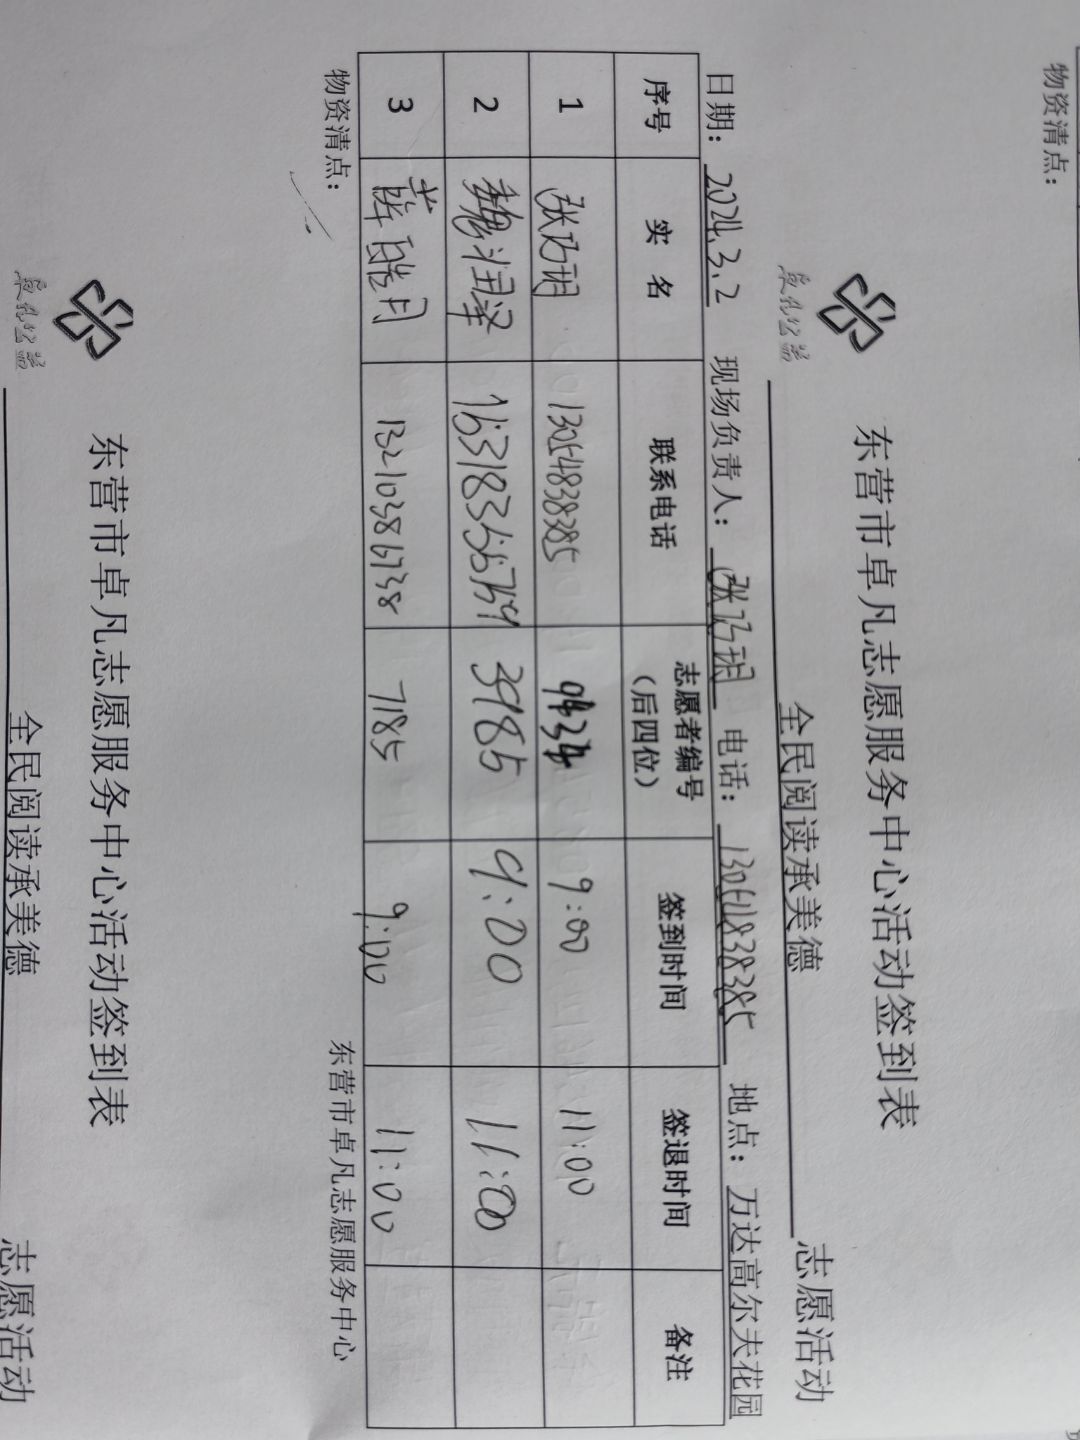 物资清点：
东营市卓凡志愿服务中心活动签到表
卓凡公益
全民阅读承美德 志愿活动
日期：2024.3.2 现场负责人：张巧玥 电话：13054838385 地点：万达高尔夫花园
序号 实 名 联系电话 志愿者编号（后四位） 签到时间 签退时间 备注
1 张巧玥 13054838385 9:00 11:00
2 魏润泽 3985 9:00 11:00
3 薛皓月 7185 9:00 11:00
物资清点： 东营市卓凡志愿服务中心
东营市卓凡志愿服务中心活动签到表
卓凡公益
全民阅读承美德 志愿活动